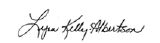 Lyra Kelly Albertson